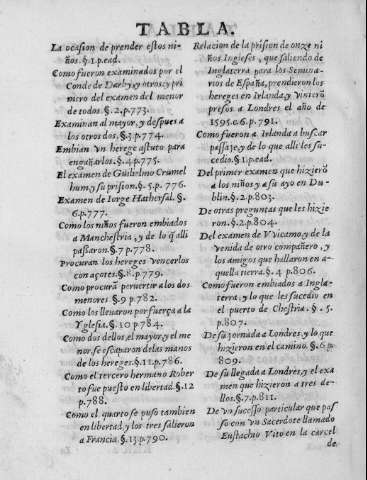 TABLA.
La ocasion de prender estos ni-
ños. §. 1. p. ead.
Como fueron examinados por el
Conde de Darby, y otros; y pri
mero del examen del menor
de todos. §. 2. p. 773.
Examinan al mayor, y despues a
los otros dos, §. 3. p. 774.
Embian vn herege astuto para
engañarlos. §. 4. p. 775.
El examen de Guilielmo Crumel
hum, y su prision. §. 5. p. 776.
Examen de Iorge Hathersal. §.
6. p. 777.
Como los niños fueron embiados
a Manchestria, y de lo q̃ alli
passaron. §. 7. p. 778.
Procuran los hereges vencerlos
con açotes. §. 8. p. 779.
Como procurã peruertir a los dos
menores. §. 9 p. 782.
Como los lleuaron por fuerça a la
Yglesia. §. 10 p. 784.
Como dos dellos el mayor, y el me
nor se escaparon de las manos
de los hereges. §. 11. p. 786.
Como el tercero hermano Rober
to fue puesto en libertad. §. 12
p. 788.
Como el quarto se puso tambien
en libertad, y los tres salieron
a Francia. §. 13. p. 790.
Relacion de la prision de onze ni
ños Ingleses, que saliendo de
Inglaterra para los Semina-
rios de España, prendieron los
hereges en Irlanda, y vinierõ
presos a Londres el año de
1595. 06. p. 791.
Como fueron a Irlanda a buscar
passaje, y de lo que alli les su-
cedio. §. 1. p. ead.
Del primer examen que hizierõ
a los niños y a su ayo en Du-
blin. §. 2. p. 803.
De otras preguntas que les hizie
ron. §. 2. p. 804.
Del examen de Vvicamo, y de la
venida de otro compañero, y
los amigos que hallaron en a-
quella tierra. §. 4 p. 806.
Como fueron embiados a Ingla-
terra, y lo que les sucedio en
el puerto de Chestria. §. 5.
p. 807.
De su jornada a Londres, y lo que
hizieron en el camino. §. 6. p.
809.
De su llegada a Londres, y el exa
men que hizieron a tres de-
llos. §. 7. p. 811.
De vn sucesso particular que pas
so con vn Sacerdote llamado
Eustachio Vito en la carcel
de